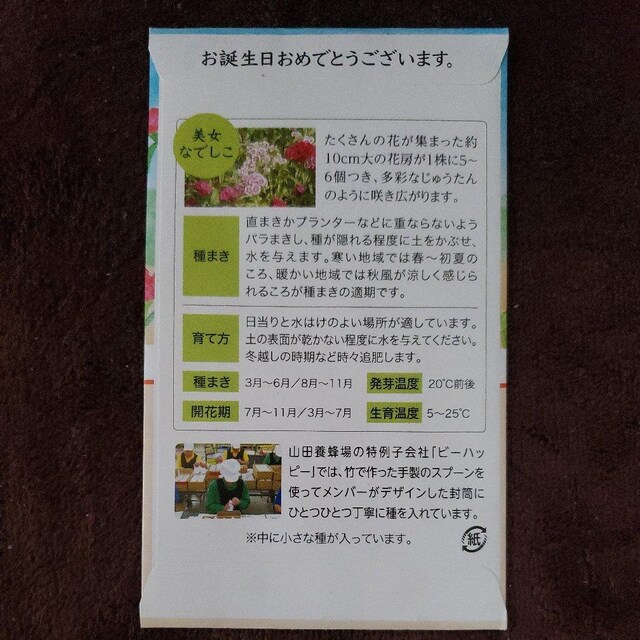 お誕生日おめでとうございます。
美女
なでしこ
たくさんの花が集まった約
10cm大の花房が1株に5〜
6個つき、多彩なじゅうたん
のように咲き広がります。
種まき
直まきかプランターなどに重ならないよう
バラまきし、種が隠れる程度に土をかぶせ、
水を与えます。寒い地域では春〜初夏の
ころ、暖かい地域では秋風が涼しく感じら
れるころが種まきの適期です。
育て方
日当りと水はけのよい場所が適しています。
土の表面が乾かない程度に水を与えてください。
冬越しの時期など時々追肥します。
種まき 3月〜6月/8月〜11月 発芽温度 20℃前後
開花期 7月〜11月/3月〜7月 生育温度 5〜25℃
山田養蜂場の特例子会社「ビーハッ
ピー」では、竹で作った手製のスプーンを
使ってメンバーがデザインした封筒に
ひとつひとつ丁寧に種を入れています。
※中に小さな種が入っています。
紙